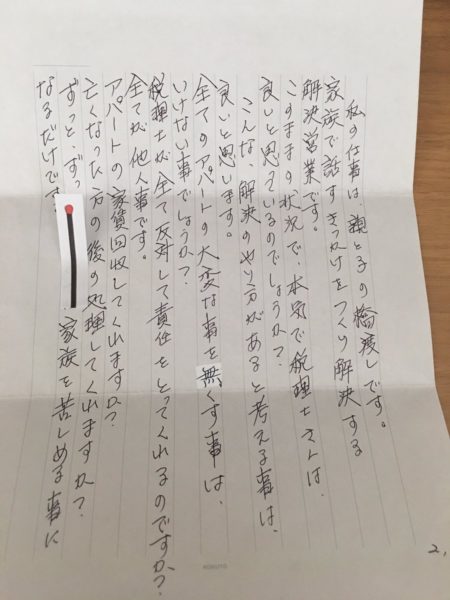 私の仕事は、親と子の橋渡しです。
家族で話すきっかけをつくり解決する
解決営業です。
このままの状況で、本気で税理士さんは、
良いと思えているのでしょうか？
こんな解決のやり方があると考える事は、
良いと思います。
全てのアパートの大変な事を無くす事は、
いけない事でしょうか？
税理士が全て反対して責任をとってくれるのですか？
全てが他人事です。
アパートの家賃回収してくれますか？
亡くなった方の後の処理してくれますか？
ずっと、ずっ 家族を苦しめる事に
なるだけです
2,
KOKUYO